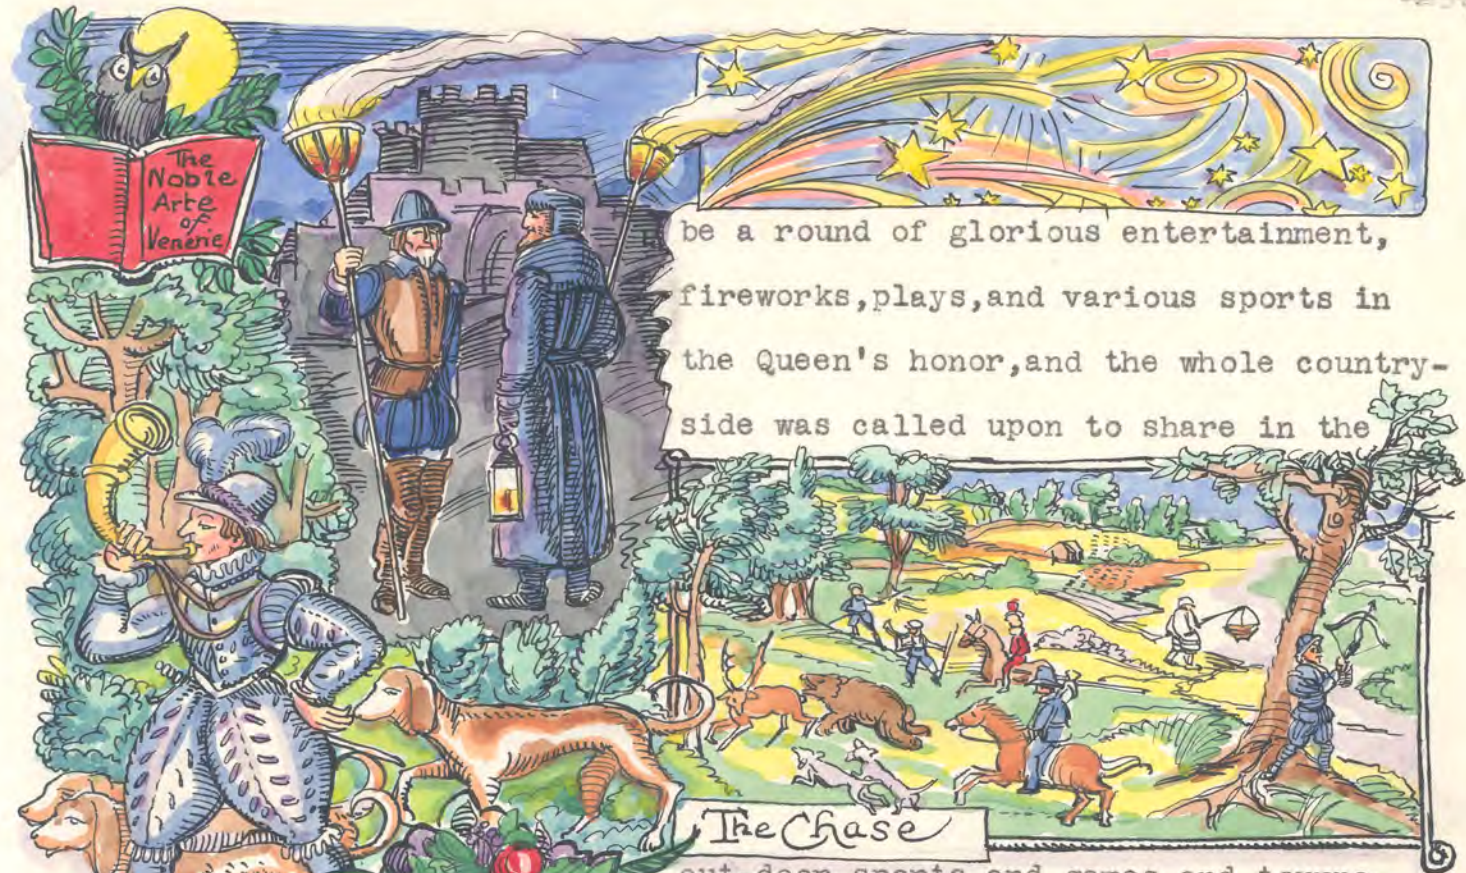 The
Noble
Arte
of
Venerie
be a round of glorious entertainment,
fireworks,plays,and various sports in
the Queen's honor,and the whole country-
side was called upon to share in the
The Chase
out door sports and games and